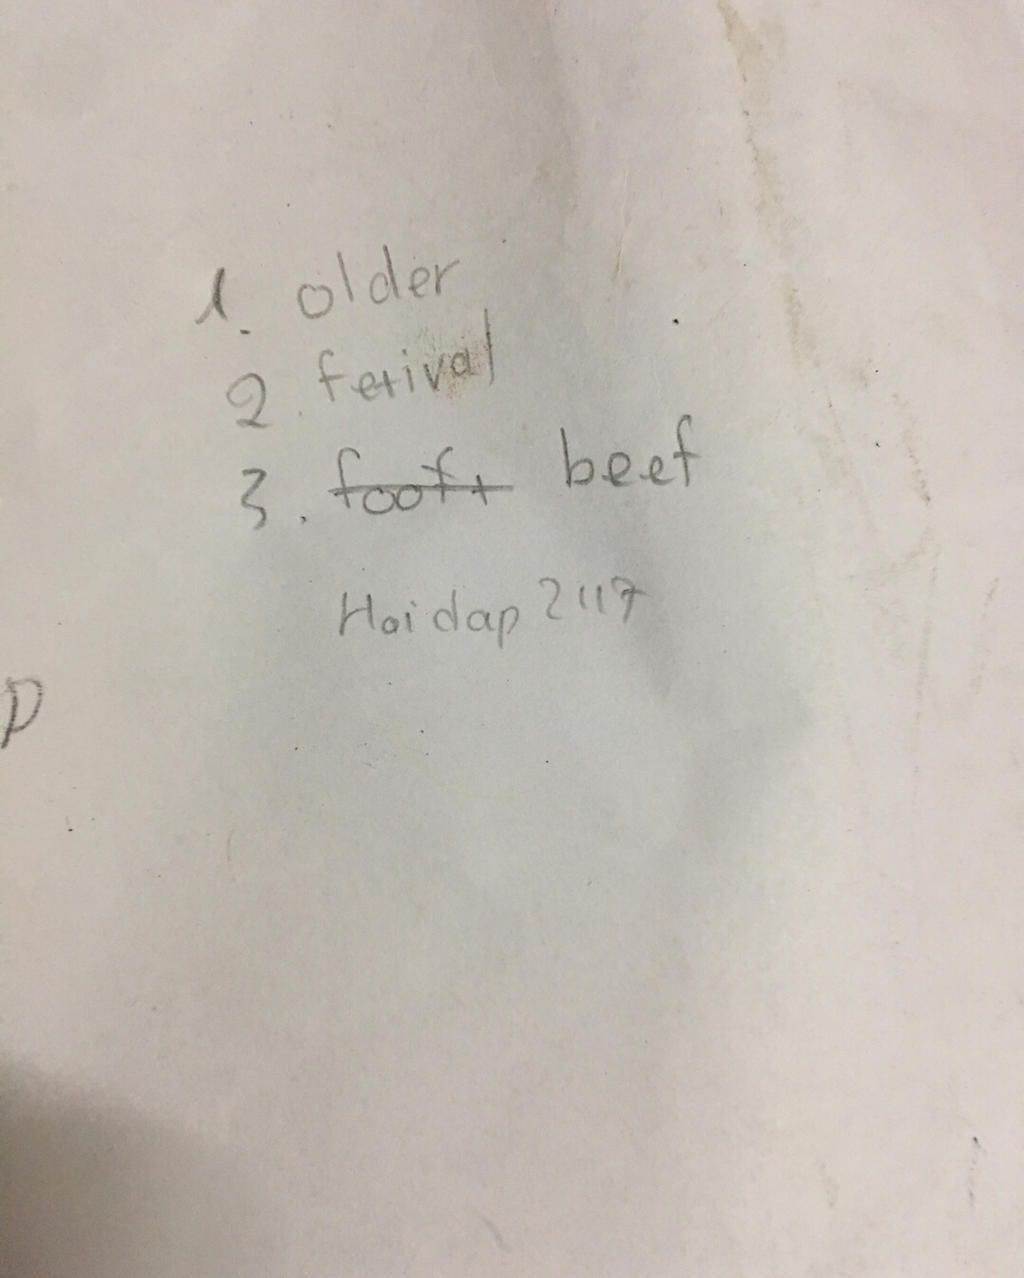 1. older
2. ferival
3. fooft beef
Haidap 2117
D